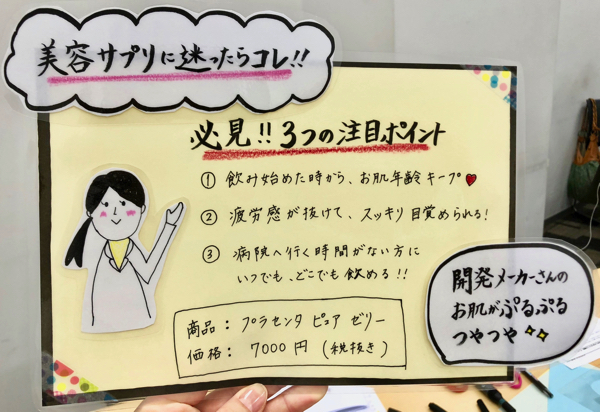 美容サプリに迷ったらコレ!!
必見!! 3つの注目ポイント
① 飲み始めた時から、お肌年齢キープ♥
② 疲労感が抜けて、スッキリ目覚められる!
③ 病院へ行く時間がない方に
いつでも、どこでも飲める!!
商品: プラセンタ ピュア ゼリー
価格: 7000円 (税抜き)
開発メーカーさんの
お肌がぷるぷる
つやつや